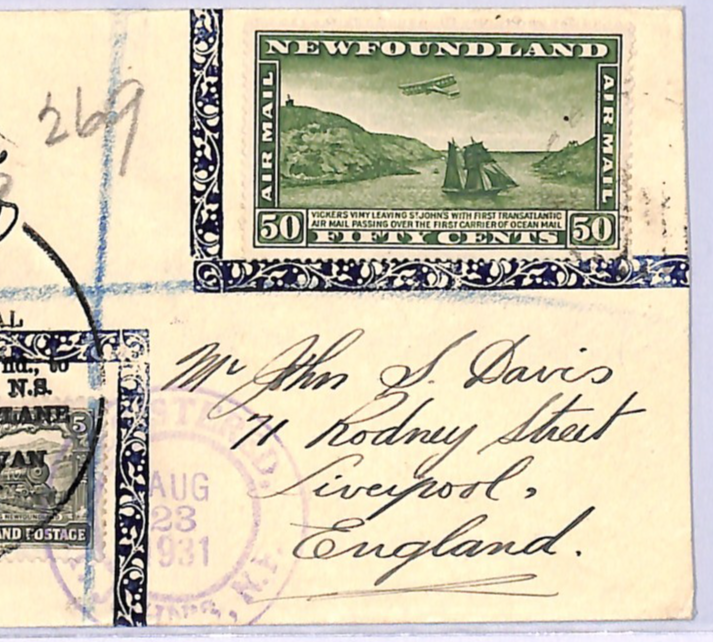 269
NEWFOUNDLAND
AIR MAIL
AIR MAIL
VICKERS VIMY LEAVING ST JOHN'S WITH FIRST TRANSATLANTIC
AIR MAIL PASSING OVER THE FIRST CARRIER OF OCEAN MAIL
50 FIFTY CENTS 50
AL
nd., to
N.S.
LANE
VAN
5
NEWFOUND
AND POSTAGE
STERED.
AUG
23
1931
Mr John S. Davis
71 Rodney Street
Liverpool,
England.